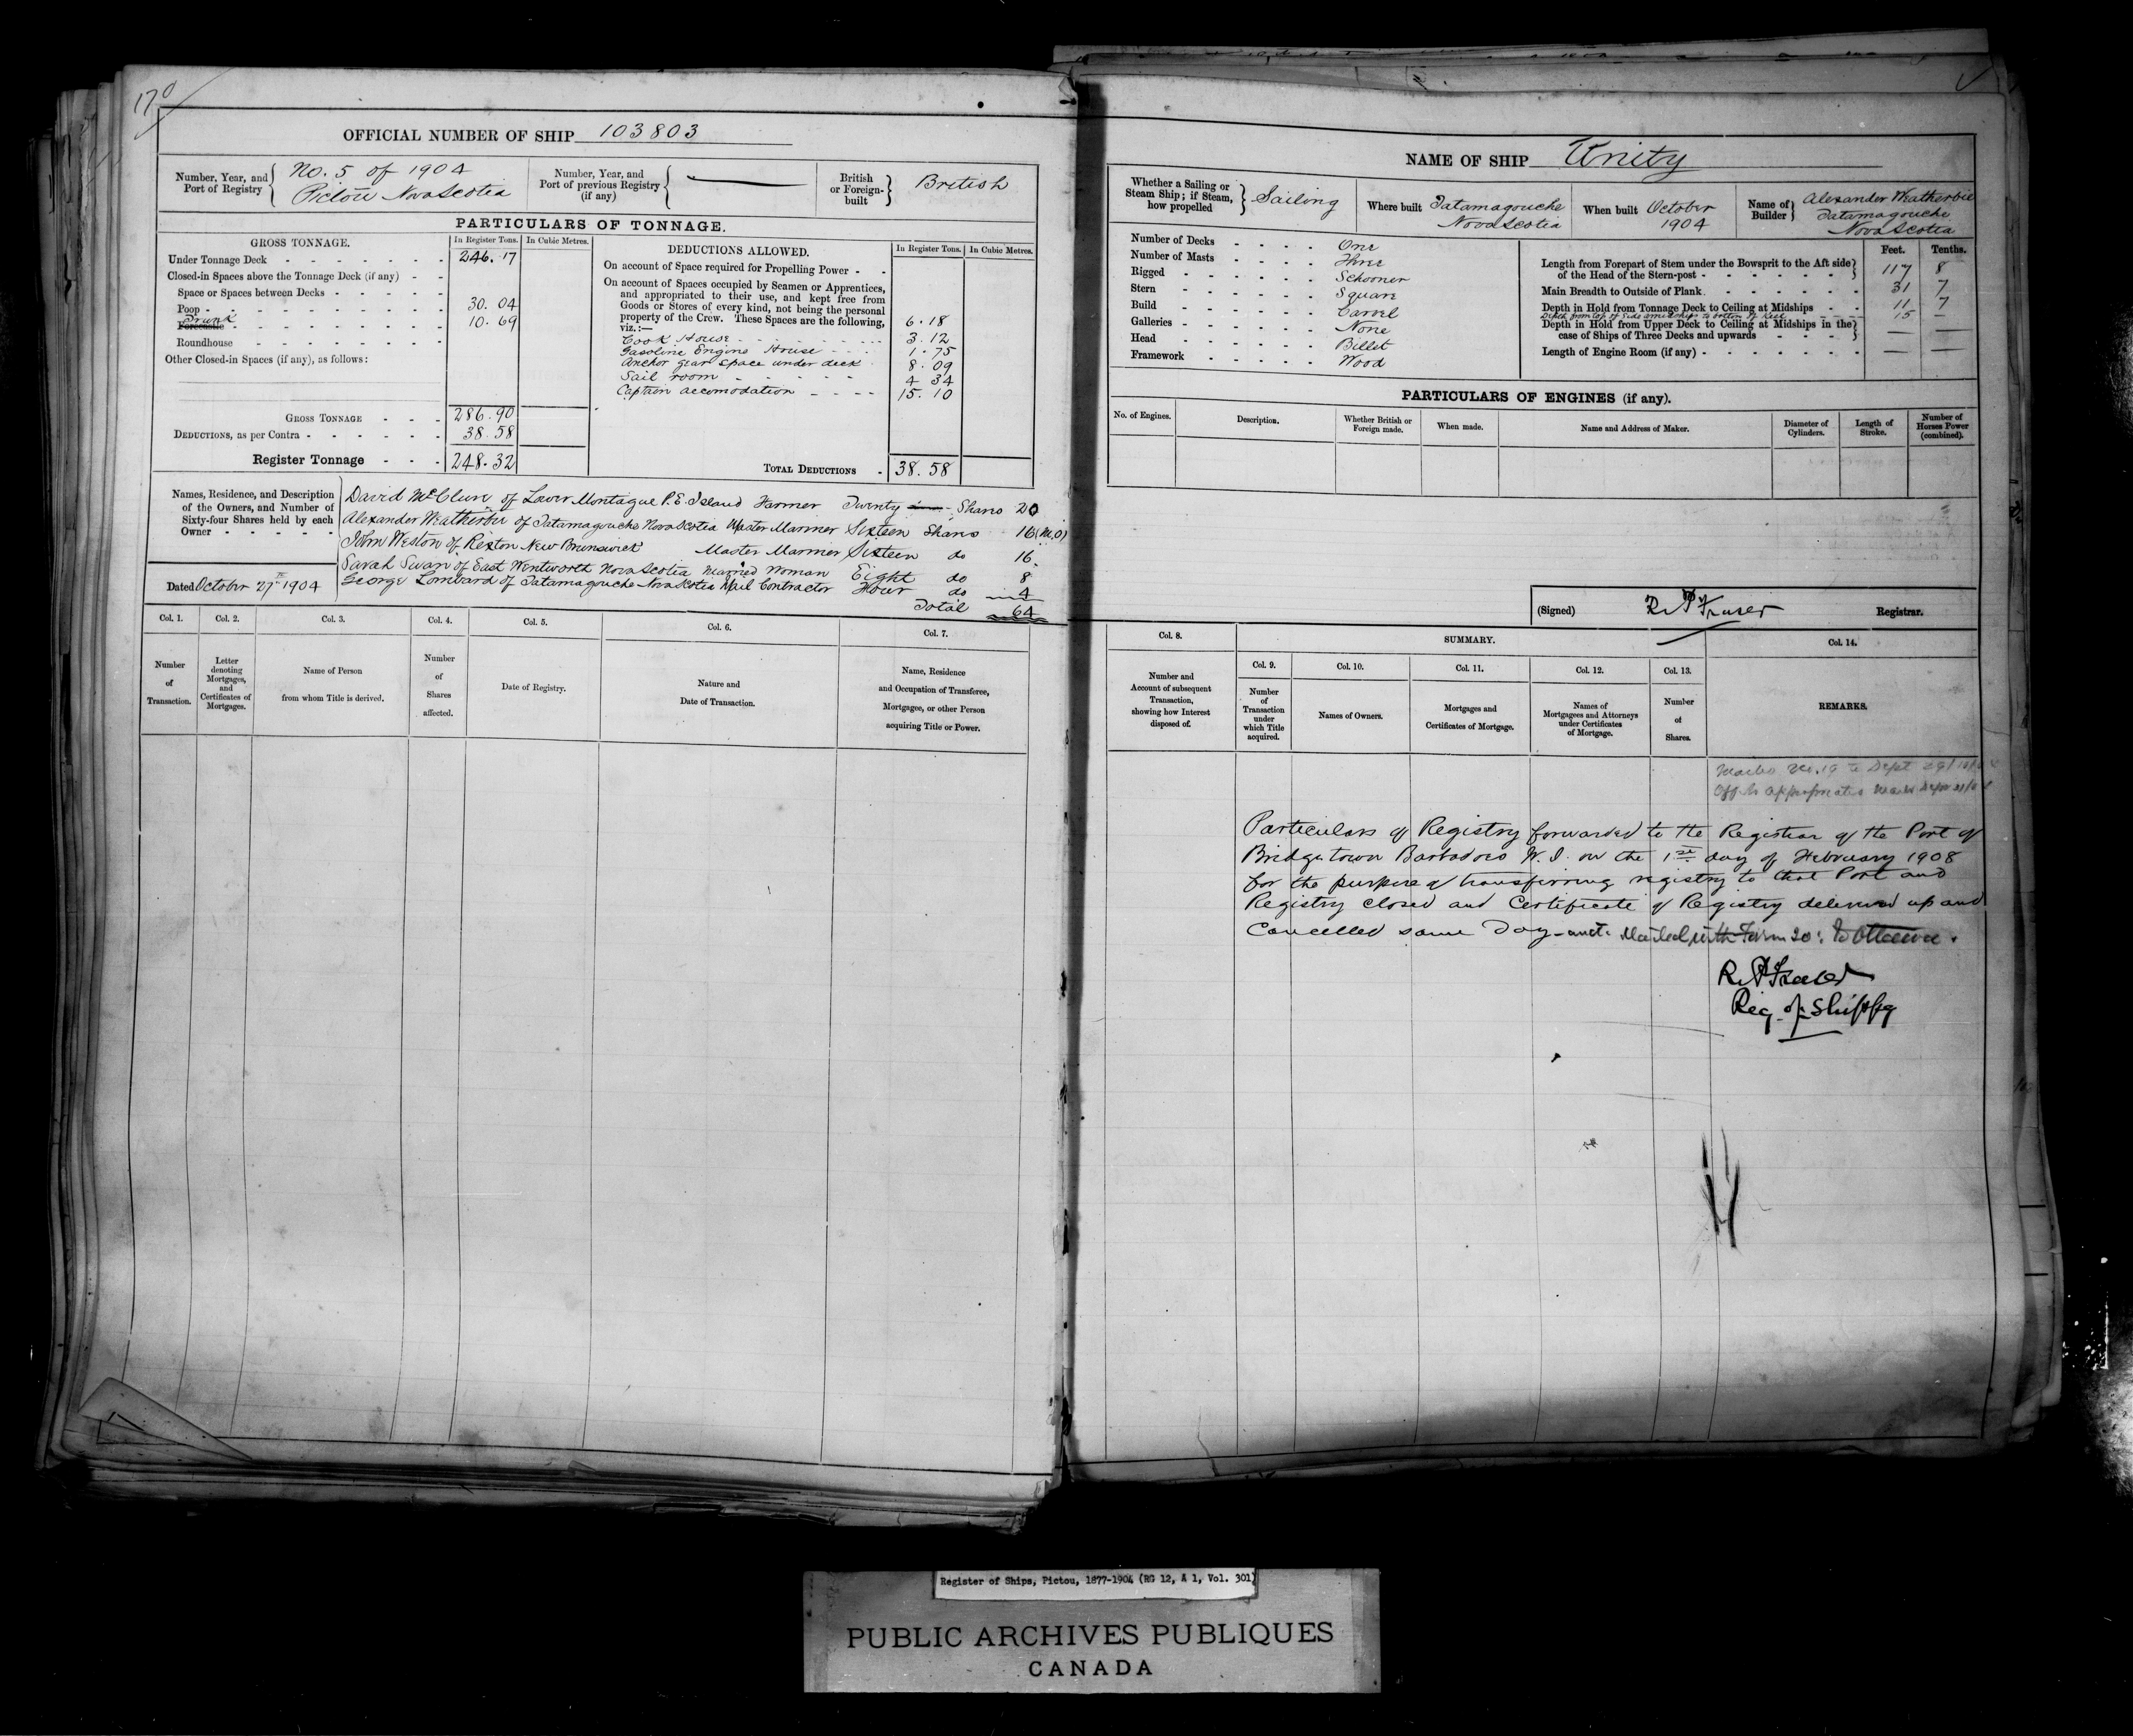 170
OFFICIAL NUMBER OF SHIP 103803
Number, Year, and Port of Registry
No. 5 of 1904
Pictou Nova Scotia
Number, Year, and Port of previous Registry (if any)
British or Foreign-built
British
PARTICULARS OF TONNAGE.
GROSS TONNAGE. In Register Tons. In Cubic Metres.
Under Tonnage Deck 246.17
Closed-in Spaces above the Tonnage Deck (if any)
Space or Spaces between Decks
Poop 30.04
Forecastle Trunk 10.69
Roundhouse
Other Closed-in Spaces (if any), as follows:
GROSS TONNAGE 286.90
DEDUCTIONS, as per Contra 38.58
Register Tonnage 248.32
DEDUCTIONS ALLOWED. In Register Tons. In Cubic Metres.
On account of Space required for Propelling Power
On account of Spaces occupied by Seamen or Apprentices,
and appropriated to their use, and kept free from
Goods or Stores of every kind, not being the personal
property of the Crew. These Spaces are the following, 6.18
viz.:—
Cook House 3.12
Gasoline Engine House 1.75
Anchor gear space under deck 8.09
Sail room 4 34
Captain accomodation 15.10
TOTAL DEDUCTIONS 38.58
Names, Residence, and Description
of the Owners, and Number of
Sixty-four Shares held by each
Owner
David McClure of Lower Montague P.E. Island Farmer Twenty Shares 20
Alexander Weatherbie of Tatamagouche Nova Scotia Master Mariner Sixteen Shares 16 (M.O)
John Weston of Rexton New Brunswick Master Mariner Sixteen do 16
Sarah Swan of East Wentworth Nova Scotia Married Woman Eight do 8
George Lombard of Tatamagouche Nova Scotia Mail Contractor Four do 4
Total 64
Dated October 27th 1904
Col. 1. Col. 2. Col. 3. Col. 4. Col. 5. Col. 6. Col. 7.
Number of Transaction.
Letter denoting Mortgages, and Certificates of Mortgages.
Name of Person from whom Title is derived.
Number of Shares affected.
Date of Registry.
Nature and Date of Transaction.
Name, Residence and Occupation of Transferee, Mortgagee, or other Person acquiring Title or Power.
NAME OF SHIP Unity
Whether a Sailing or Steam Ship; if Steam, how propelled
Sailing
Where built Tatamagouche Nova Scotia
When built October 1904
Name of Builder Alexander Weatherbie Tatamagouche Nova Scotia
Number of Decks One
Number of Masts Three
Rigged Schooner
Stern Square
Build Carvel
Galleries None
Head Billet
Framework Wood
Feet. Tenths.
Length from Forepart of Stem under the Bowsprit to the Aft side of the Head of the Stern-post 117 8
Main Breadth to Outside of Plank 31 7
Depth in Hold from Tonnage Deck to Ceiling at Midships 11 7
Depth from top of side amidships to bottom of Keel 15
Depth in Hold from Upper Deck to Ceiling at Midships in the case of Ships of Three Decks and upwards — —
Length of Engine Room (if any) — —
PARTICULARS OF ENGINES (if any).
No. of Engines. Description. Whether British or Foreign made. When made. Name and Address of Maker. Diameter of Cylinders. Length of Stroke. Number of Horses Power (combined).
(Signed) R.P. Fraser Registrar.
Col. 8. SUMMARY. Col. 14.
Col. 9. Col. 10. Col. 11. Col. 12. Col. 13.
Number and Account of subsequent Transaction, showing how Interest disposed of.
Number of Transaction under which Title acquired.
Names of Owners.
Mortgages and Certificates of Mortgage.
Names of Mortgagees and Attorneys under Certificates of Mortgage.
Number of Shares.
REMARKS.
No. 19 to Dept
Particulars of Registry forwarded to the Registrar of the Port of
Bridgetown Barbadoes W.I. on the 1st day of February 1908
for the purpose of transferring registry to that Port and
Registry closed and Certificate of Registry delivered up and
Cancelled same Day and Mailed with Form 20: to Ottawa.
R.P. Fraser
Reg. of Shippg
Register of Ships, Pictou, 1877-1904 (RG 12, A 1, Vol. 301)
PUBLIC ARCHIVES PUBLIQUES
CANADA